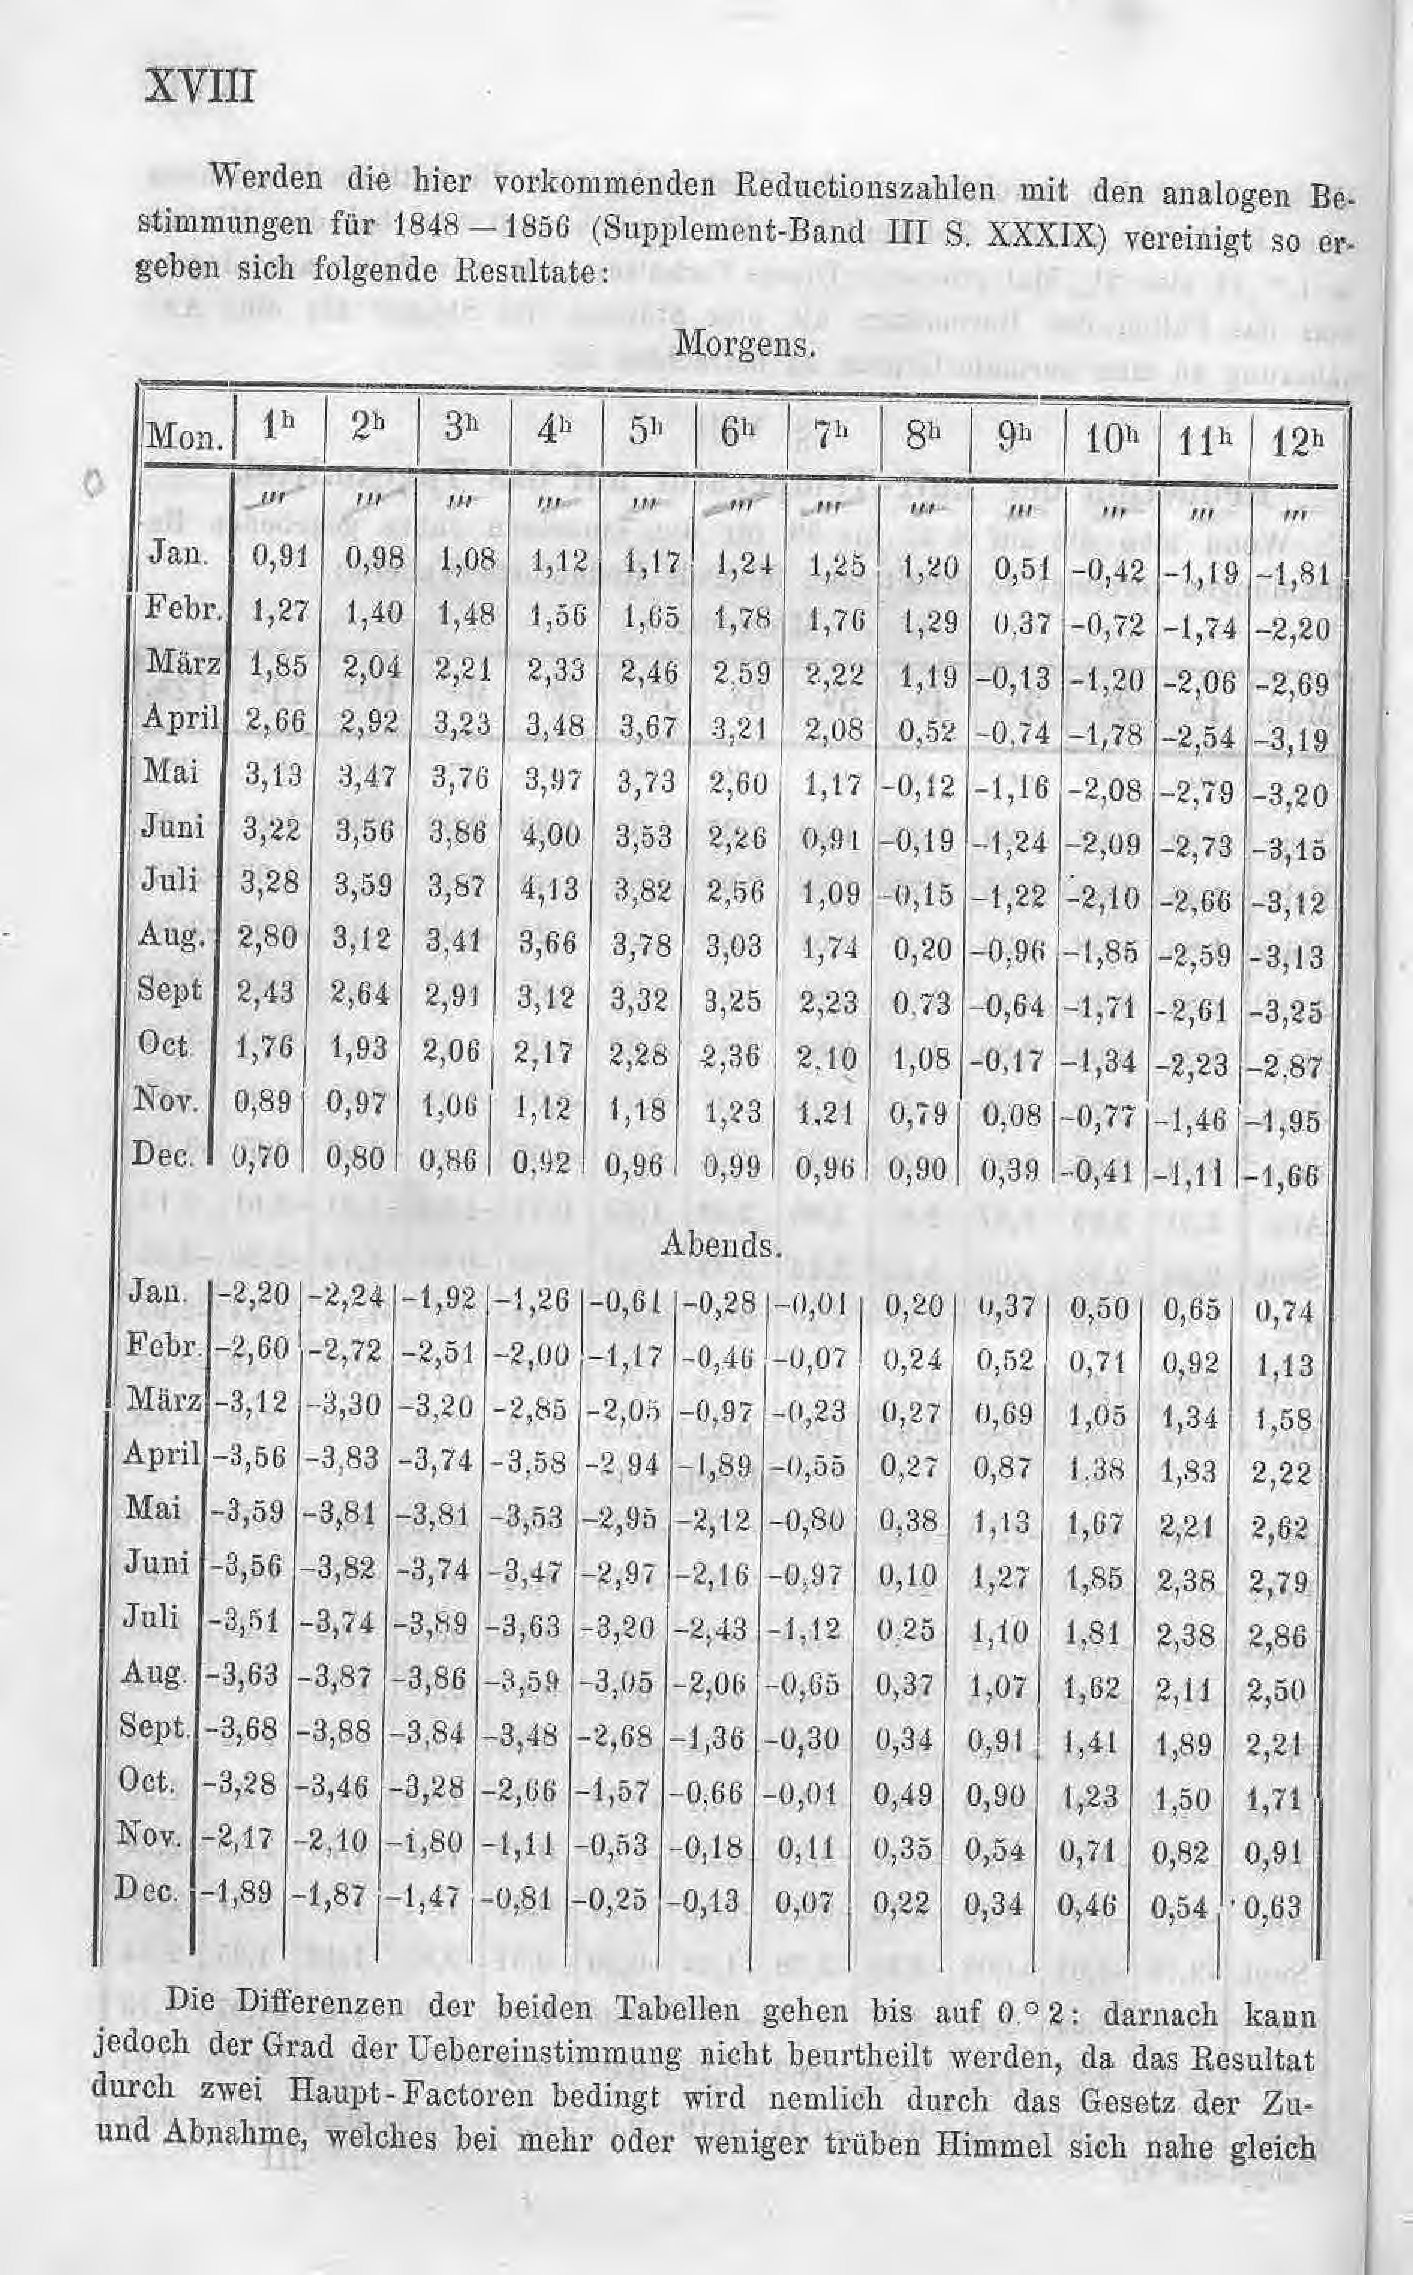 XVIII
Werden die hier vorkommenden Reductionszahlen mit den analogen Be-
stimmungen für 1848—1856 (Supplement-Band III S. XXXIX) vereinigt so er-
geben sich folgende Resultate:
Morgens.
Mon. 1h 2h 3h 4h 5h 6h 7h 8h 9h 10h 11h 12h
''' ''' ''' ''' ''' ''' ''' ''' ''' ''' ''' '''
Jan. 0,91 0,98 1,08 1,12 1,17 1,24 1,25 1,20 0,51 -0,42 -1,19 -1,81
Febr. 1,27 1,40 1,48 1,56 1,65 1,78 1,76 1,29 0,37 -0,72 -1,74 -2,20
März 1,85 2,04 2,21 2,33 2,46 2,59 2,22 1,19 -0,13 -1,20 -2,06 -2,69
April 2,66 2,92 3,23 3,48 3,67 3,21 2,08 0,52 -0,74 -1,78 -2,54 -3,19
Mai 3,13 3,47 3,76 3,97 3,73 2,60 1,17 -0,12 -1,16 -2,08 -2,79 -3,20
Juni 3,22 3,56 3,86 4,00 3,53 2,26 0,91 -0,19 -1,24 -2,09 -2,73 -3,15
Juli 3,28 3,59 3,87 4,13 3,82 2,56 1,09 -0,15 -1,22 -2,10 -2,66 -3,12
Aug. 2,80 3,12 3,41 3,66 3,78 3,03 1,74 0,20 -0,96 -1,85 -2,59 -3,13
Sept 2,43 2,64 2,91 3,12 3,32 3,25 2,23 0,73 -0,64 -1,71 -2,61 -3,25
Oct. 1,76 1,93 2,06 2,17 2,28 2,36 2,10 1,08 -0,17 -1,34 -2,23 -2,87
Nov. 0,89 0,97 1,06 1,12 1,18 1,23 1,21 0,79 0,08 -0,77 -1,46 -1,95
Dec. 0,70 0,80 0,86 0,92 0,96 0,99 0,96 0,90 0,39 -0,41 -1,11 -1,66
Abends.
Jan. -2,20 -2,24 -1,92 -1,26 -0,61 -0,28 -0,01 0,20 0,37 0,50 0,65 0,74
Febr. -2,60 -2,72 -2,51 -2,00 -1,17 -0,46 -0,07 0,24 0,52 0,71 0,92 1,13
März -3,12 -3,30 -3,20 -2,85 -2,05 -0,97 -0,23 0,27 0,69 1,05 1,34 1,58
April -3,56 -3,83 -3,74 -3,58 -2,94 -1,89 -0,55 0,27 0,87 1,38 1,83 2,22
Mai -3,59 -3,81 -3,81 -3,53 -2,95 -2,12 -0,80 0,38 1,13 1,67 2,21 2,62
Juni -3,56 -3,82 -3,74 -3,47 -2,97 -2,16 -0,97 0,10 1,27 1,85 2,38 2,79
Juli -3,51 -3,74 -3,89 -3,63 -3,20 -2,43 -1,12 0,25 1,10 1,81 2,38 2,86
Aug. -3,63 -3,87 -3,86 -3,59 -3,05 -2,06 -0,65 0,37 1,07 1,62 2,11 2,50
Sept. -3,68 -3,88 -3,84 -3,48 -2,68 -1,36 -0,30 0,34 0,91 1,41 1,89 2,21
Oct. -3,28 -3,46 -3,28 -2,66 -1,57 -0,66 -0,01 0,49 0,90 1,23 1,50 1,71
Nov. -2,17 -2,10 -1,80 -1,11 -0,53 -0,18 0,11 0,35 0,54 0,71 0,82 0,91
Dec. -1,89 -1,87 -1,47 -0,81 -0,25 -0,13 0,07 0,22 0,34 0,46 0,54 0,63
Die Differenzen der beiden Tabellen gehen bis auf 0.°2: darnach kann
jedoch der Grad der Uebereinstimmung nicht beurtheilt werden, da das Resultat
durch zwei Haupt-Factoren bedingt wird nemlich durch das Gesetz der Zu-
und Abnahme, welches bei mehr oder weniger trüben Himmel sich nahe gleich